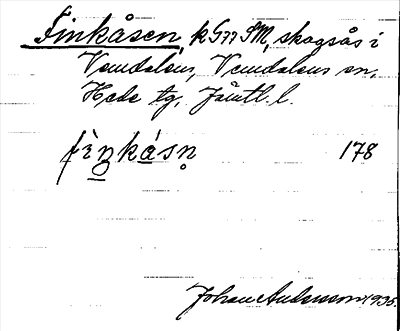 Finkåsen, k G77 SM, skogsås i
Vemdalens, Vemdalens sn,
Hede tg, Jämtl. l.
fìŋkásn̥ 178
Johan Andersson 1935.